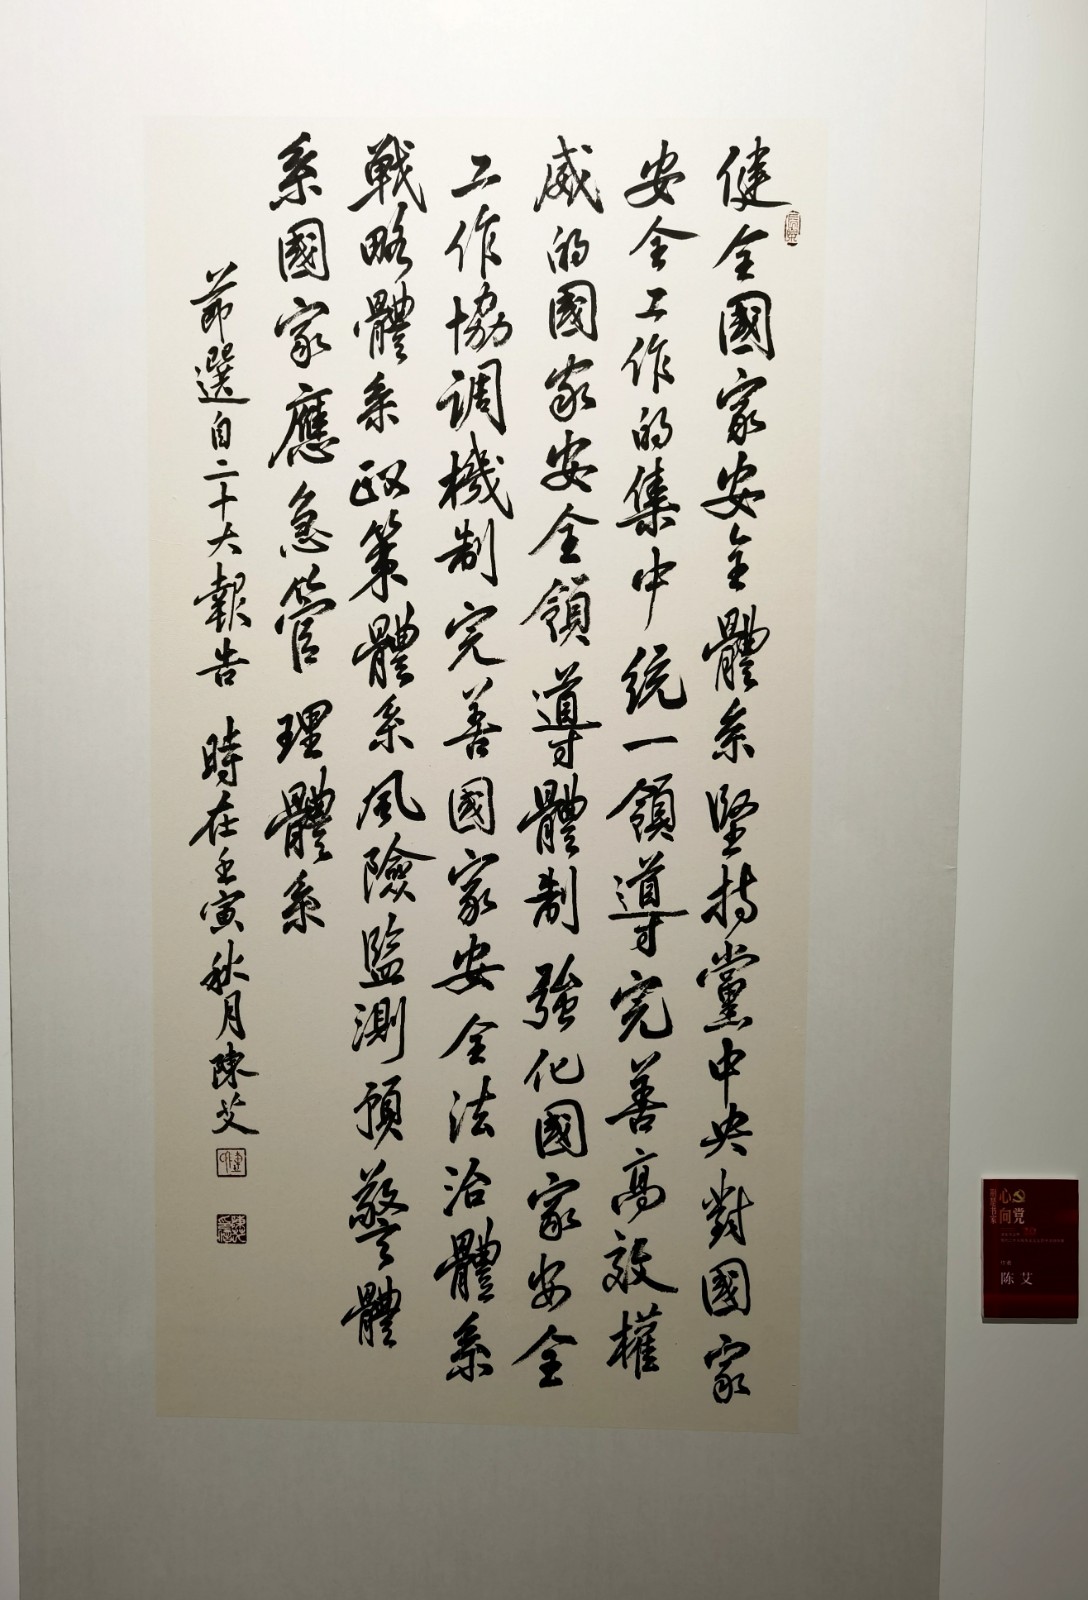 健全國家安全體系堅持黨中央對國家
安全工作的集中統一領導完善高效權
威的國家安全領導體制強化國家安全
工作協調機制完善國家安全法治體系
戰略體系政策體系風險監測預警體
系國家應急管理體系
節選自二十大報告 時在壬寅秋月陳艾
心向党
作者
陈艾